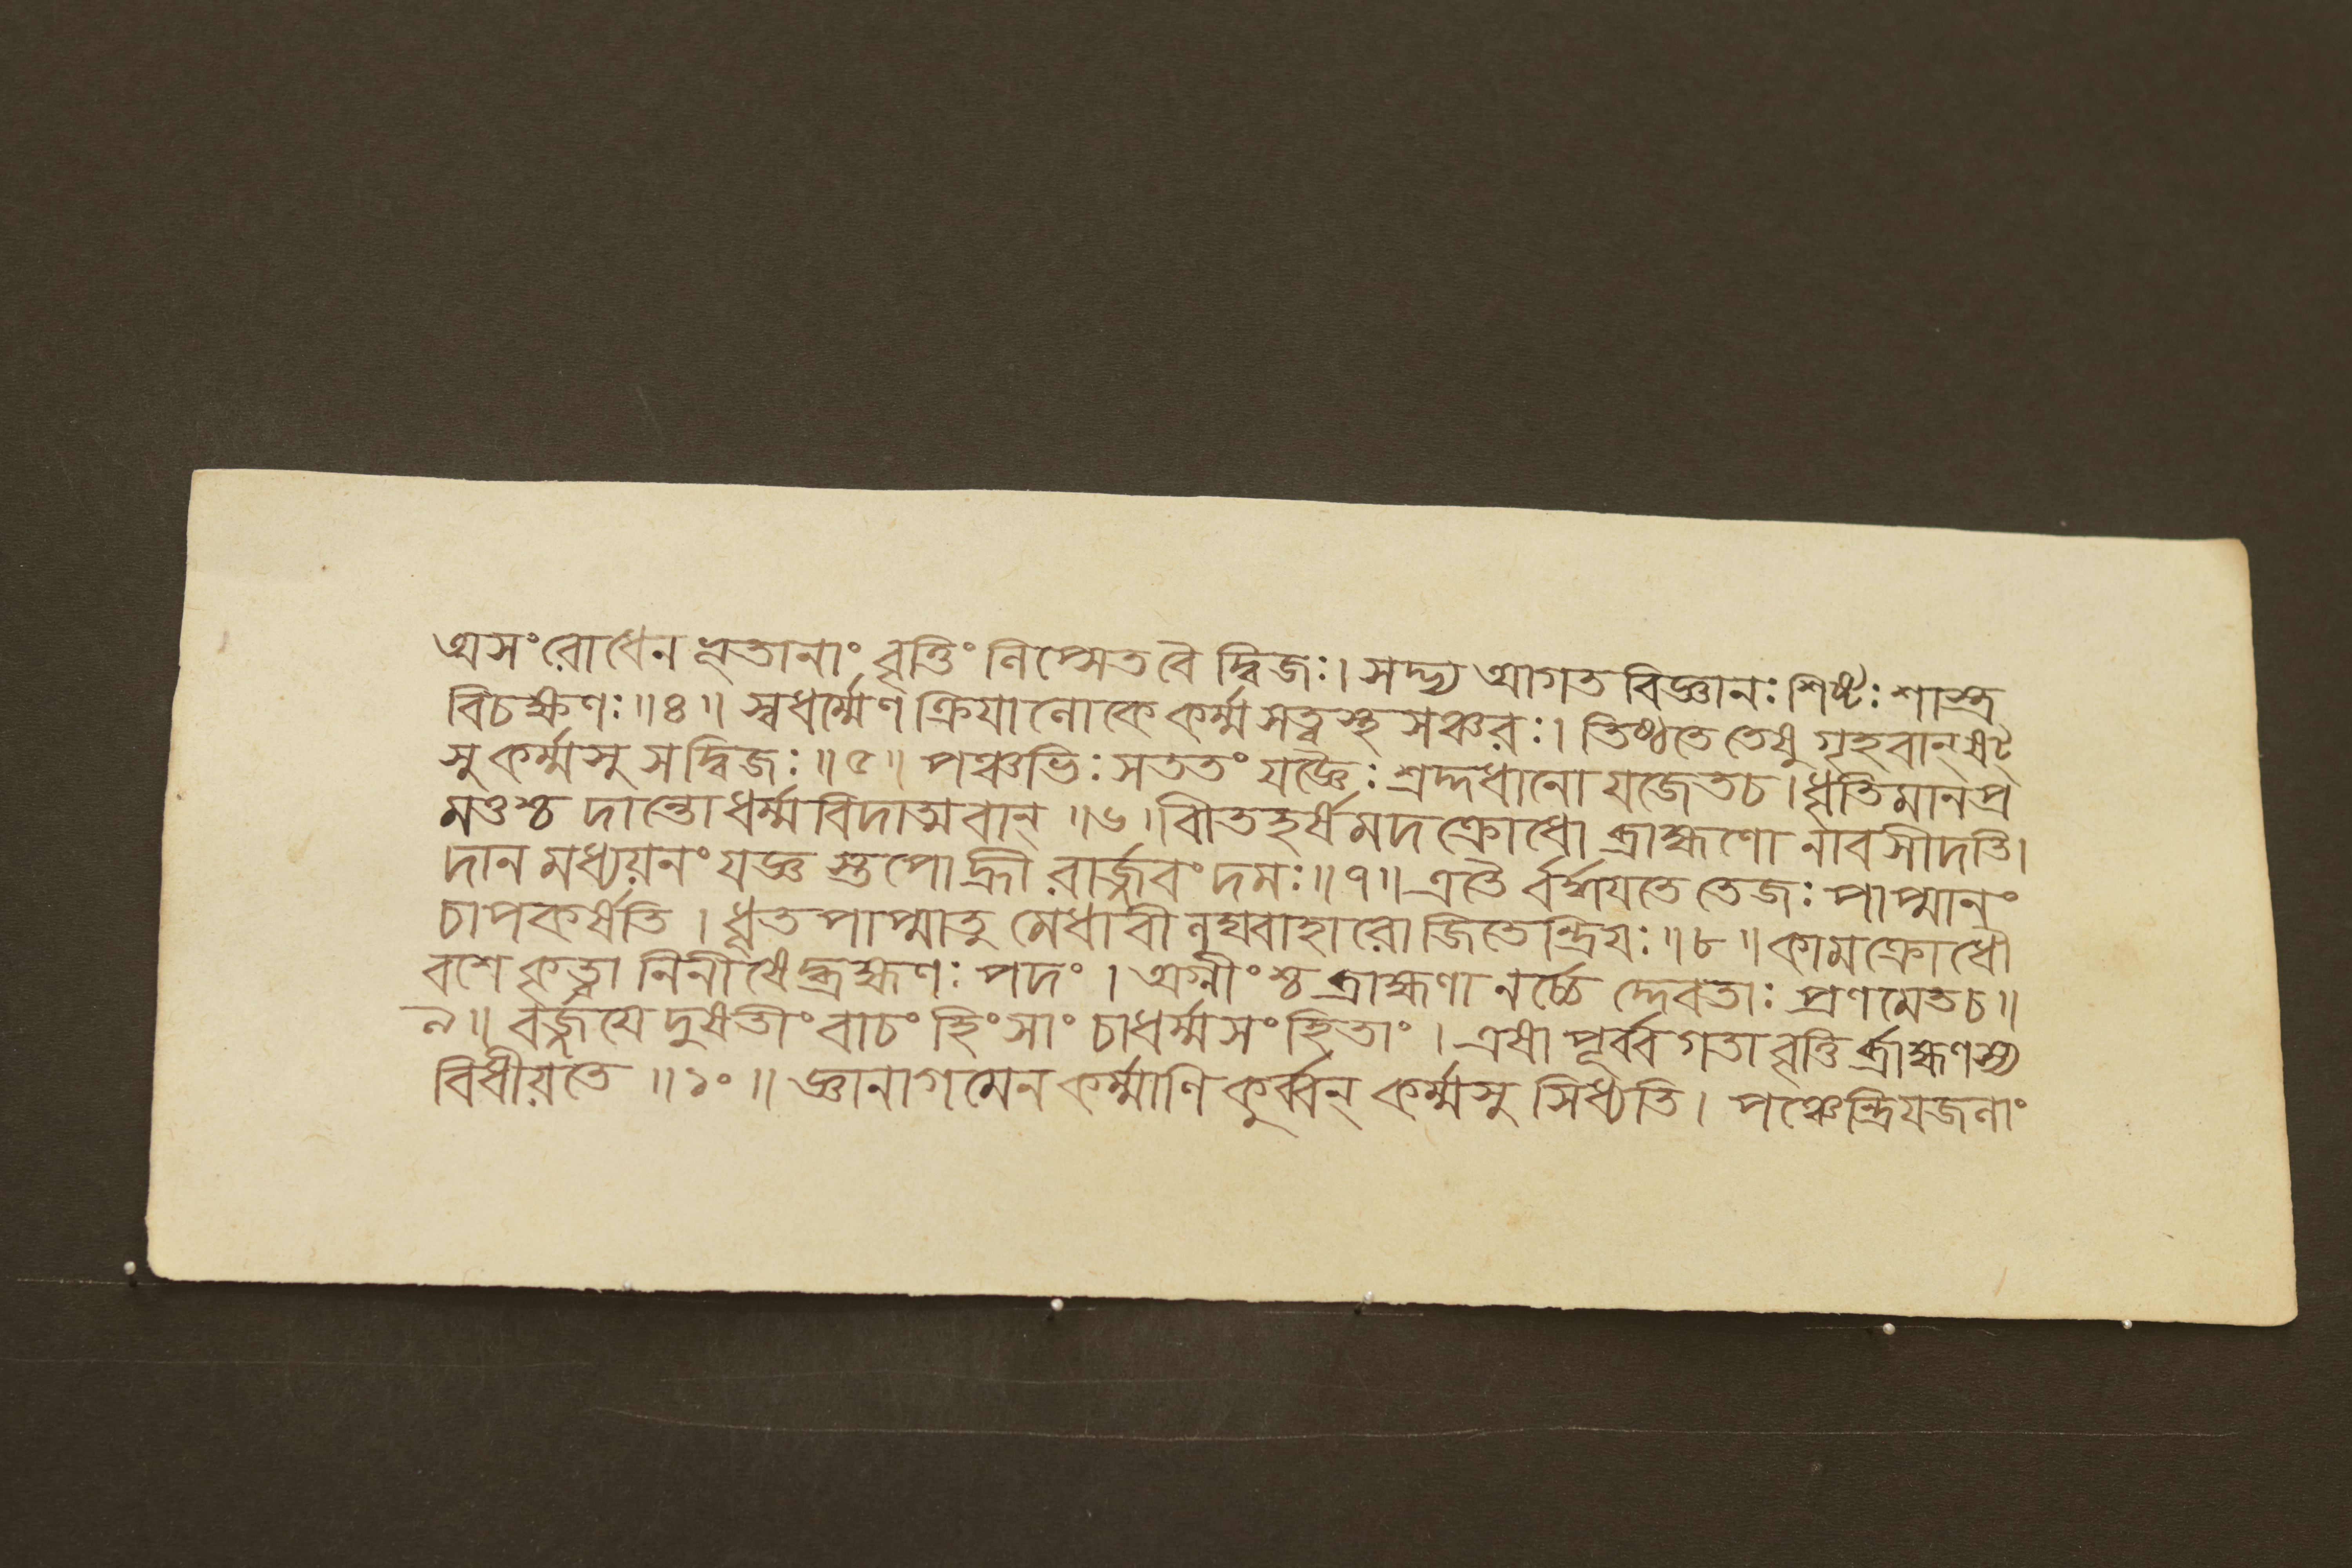 অসংরোধেন ভূতানাং বৃত্তিং লিপ্সেত বৈ দ্বিজঃ। সদ্ভ্য আগত বিজ্ঞানঃ শিষ্টঃ শাস্ত্র
বিচক্ষণঃ॥৪॥ স্বধর্ম্মেণ ক্রিযালোকে কর্ম্ম সত্বস্থ সঞ্চরঃ। তিষ্ঠতে তেষু গৃহবান্ ষট্
সু কর্ম্মসু সদ্বিজঃ॥৫॥ পঞ্চভিঃ সততং যজ্ঞৈঃ শ্রদ্দধানো যজেতচ।ধৃতিমানপ্র
মত্তশ্চ দান্তো ধর্ম্মবিদাত্মবান্॥৬।বীতহর্ষমদক্রোধো ব্রাহ্মণো নাবসীদতি।
দানমধ্যয়নং যজ্ঞ স্তপোহ্রী রার্জ্জবং দমঃ॥৭॥এতৈ র্বর্দ্ধযতে তেজঃ পাপ্মানং
চাপকর্ষতি। ধূতপাপ্মাতু মেধাবী লঘ্বাহারো জিতেন্দ্রিযঃ॥৮॥কামক্রোধৌ
বশে কৃত্বা নিনীষেদ্ব্রহ্মণঃ পদং। অগ্নীংশ্চ ব্রাহ্মণা নর্চ্চে দ্দেবতাঃ প্রণমেতচ॥
৯॥ বর্জ্জযে দুষতীং বাচং হিংসাং চাধর্ম্মসংহিতাং। এষা পূর্ব্ব গতা বৃত্তি র্ব্রাহ্মণস্য
বিধীয়তে॥১০॥ জ্ঞানাগমেন কর্ম্মাণি কুর্ব্বন্ কর্ম্মসু সিধ্যতি। পঞ্চেন্দ্রিযজলাং